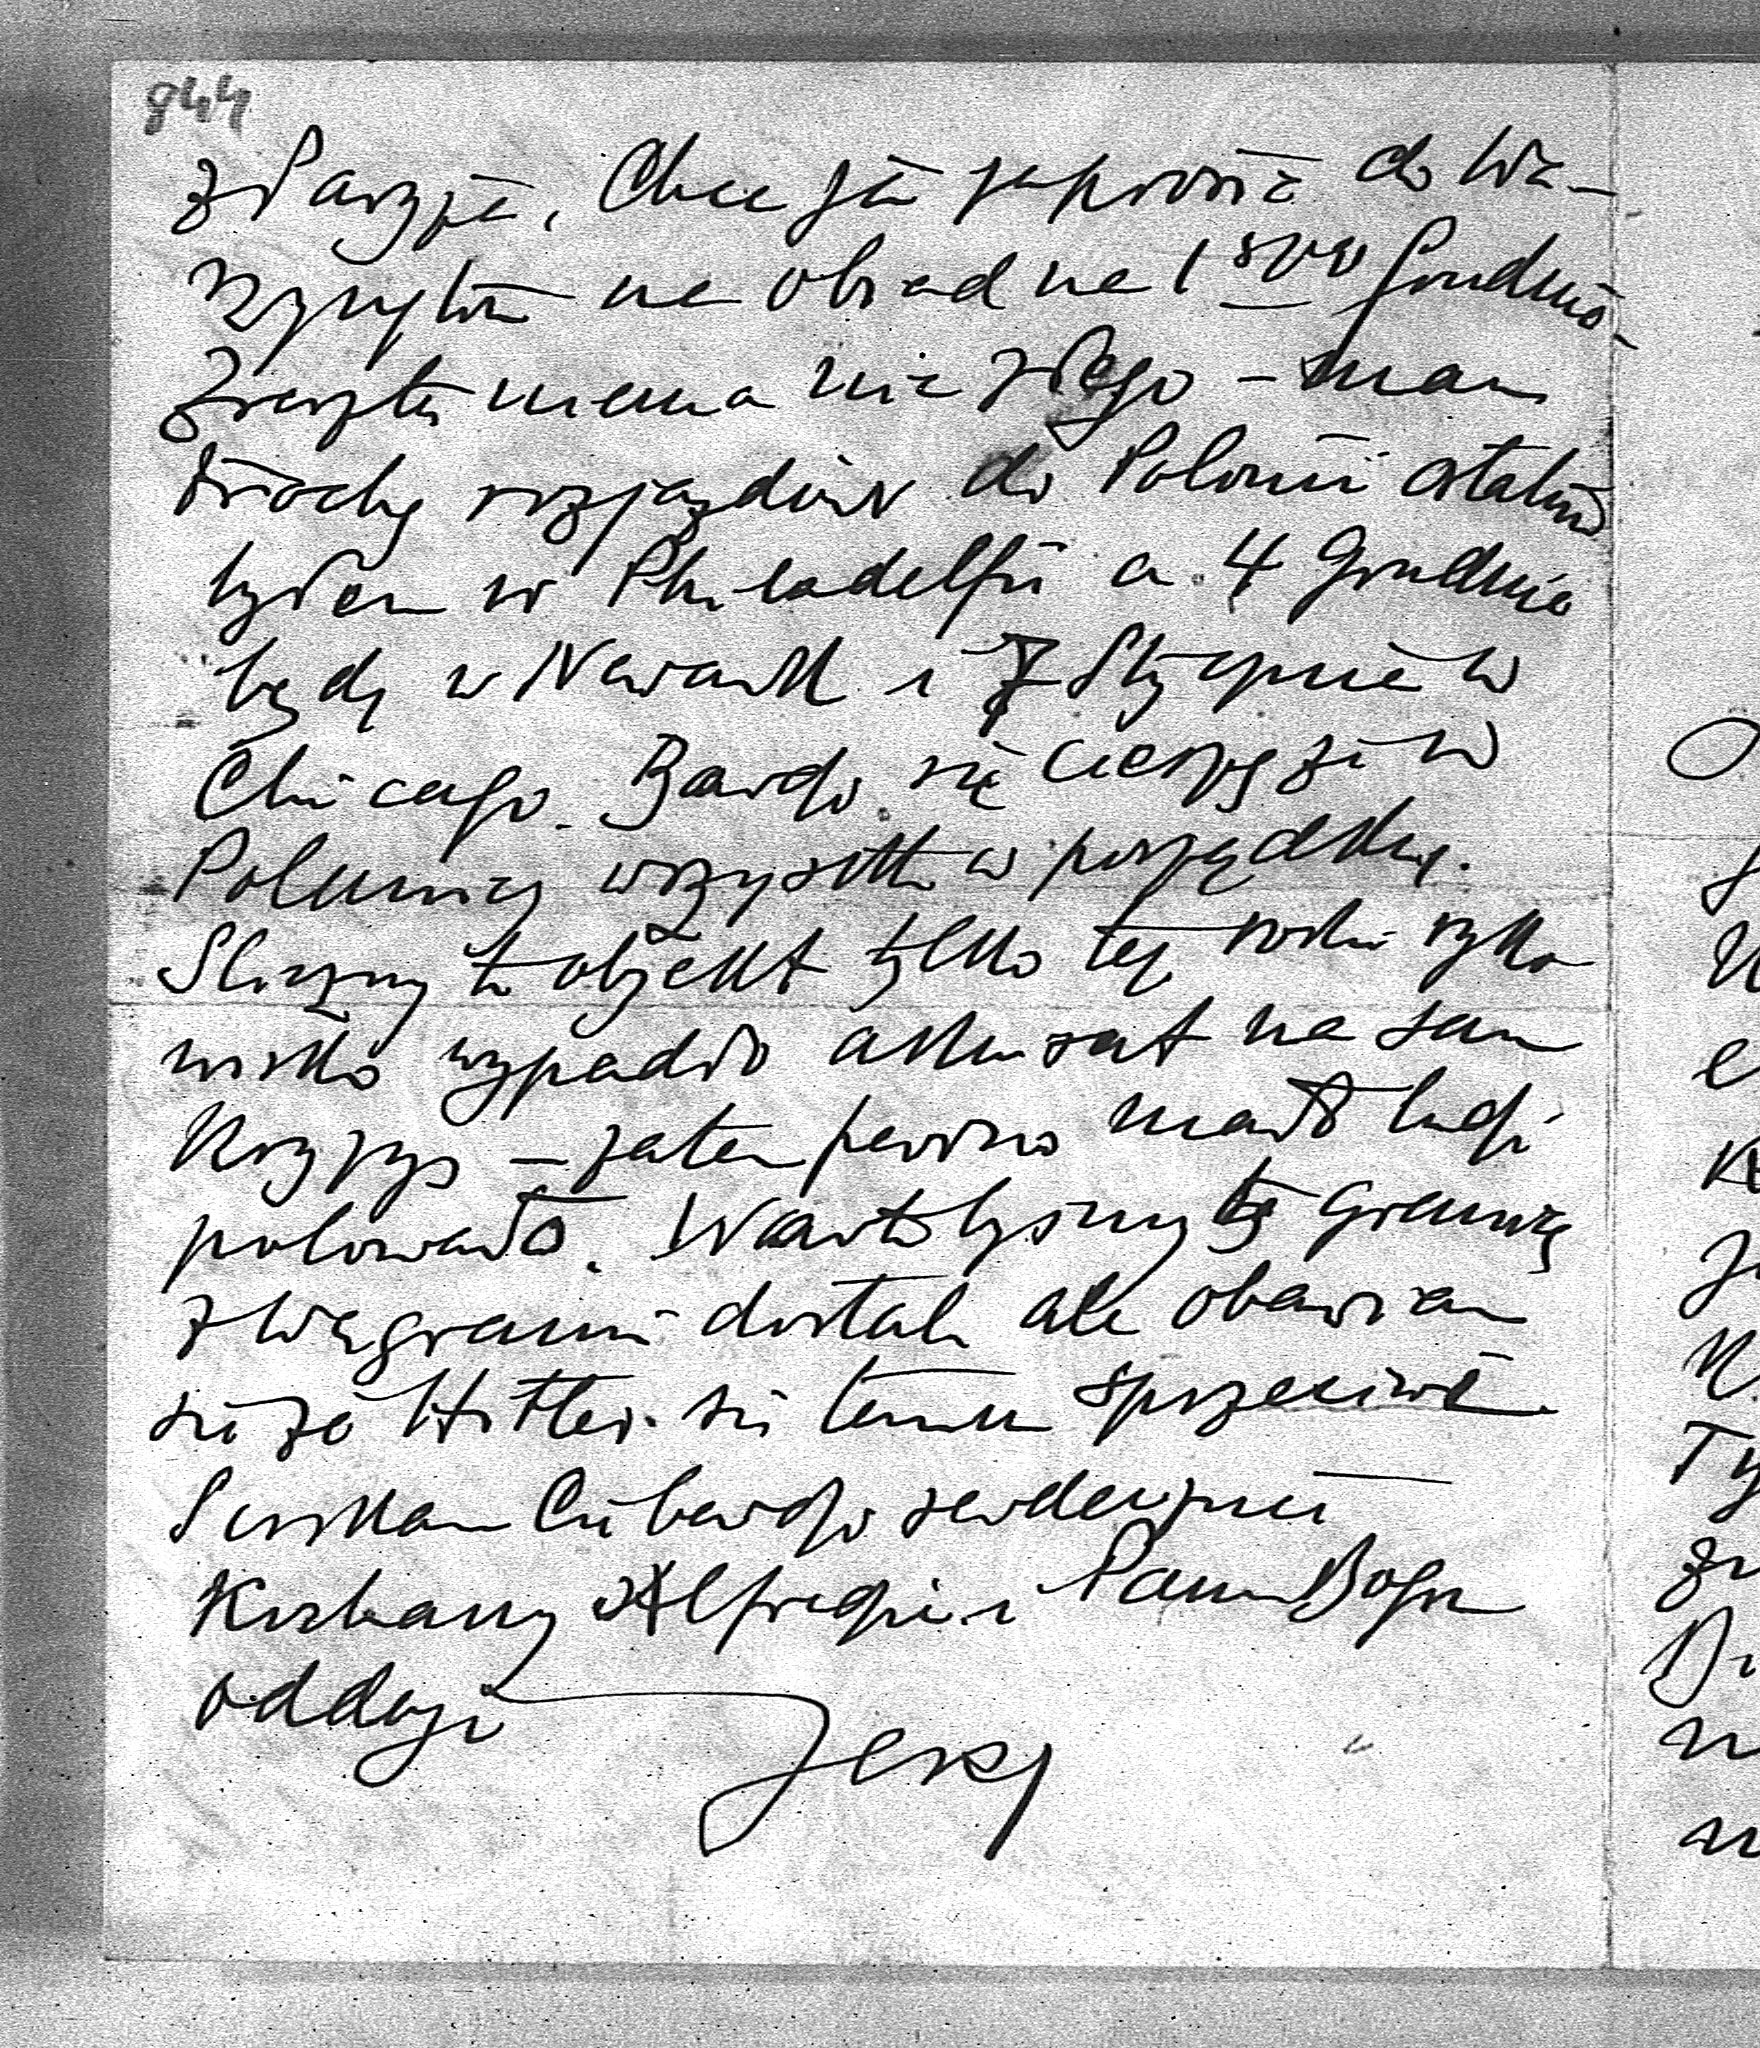 944
z Paryża. Chce ją zaprosić do Wa-
szyngton na obiad na 1szego Grudnia.
Zresztą niema nic złego – mam
trochę rozjazdów do Polonii ostatnio
byłem w Philadelfii a 4 Grudnia
będę w Newark i 7 Stycznia w
Chicago. Bardzo się cieszę że w
Polunicy wszystko w porządku.
Sliczny to objekt tylko tej roku ryko
wisko wypadło akurat na sam
Kryzys – zatem pewno mało ludzi
polowało. Wartobyśmy tę granicę
z Węgrami dostali ale obawiam
się że Hitler się temu sprzeciwi.
Sciskam Cię bardzo serdecznie
Kochany Alfredzie i Panu Bogu
oddaję
Jerzy